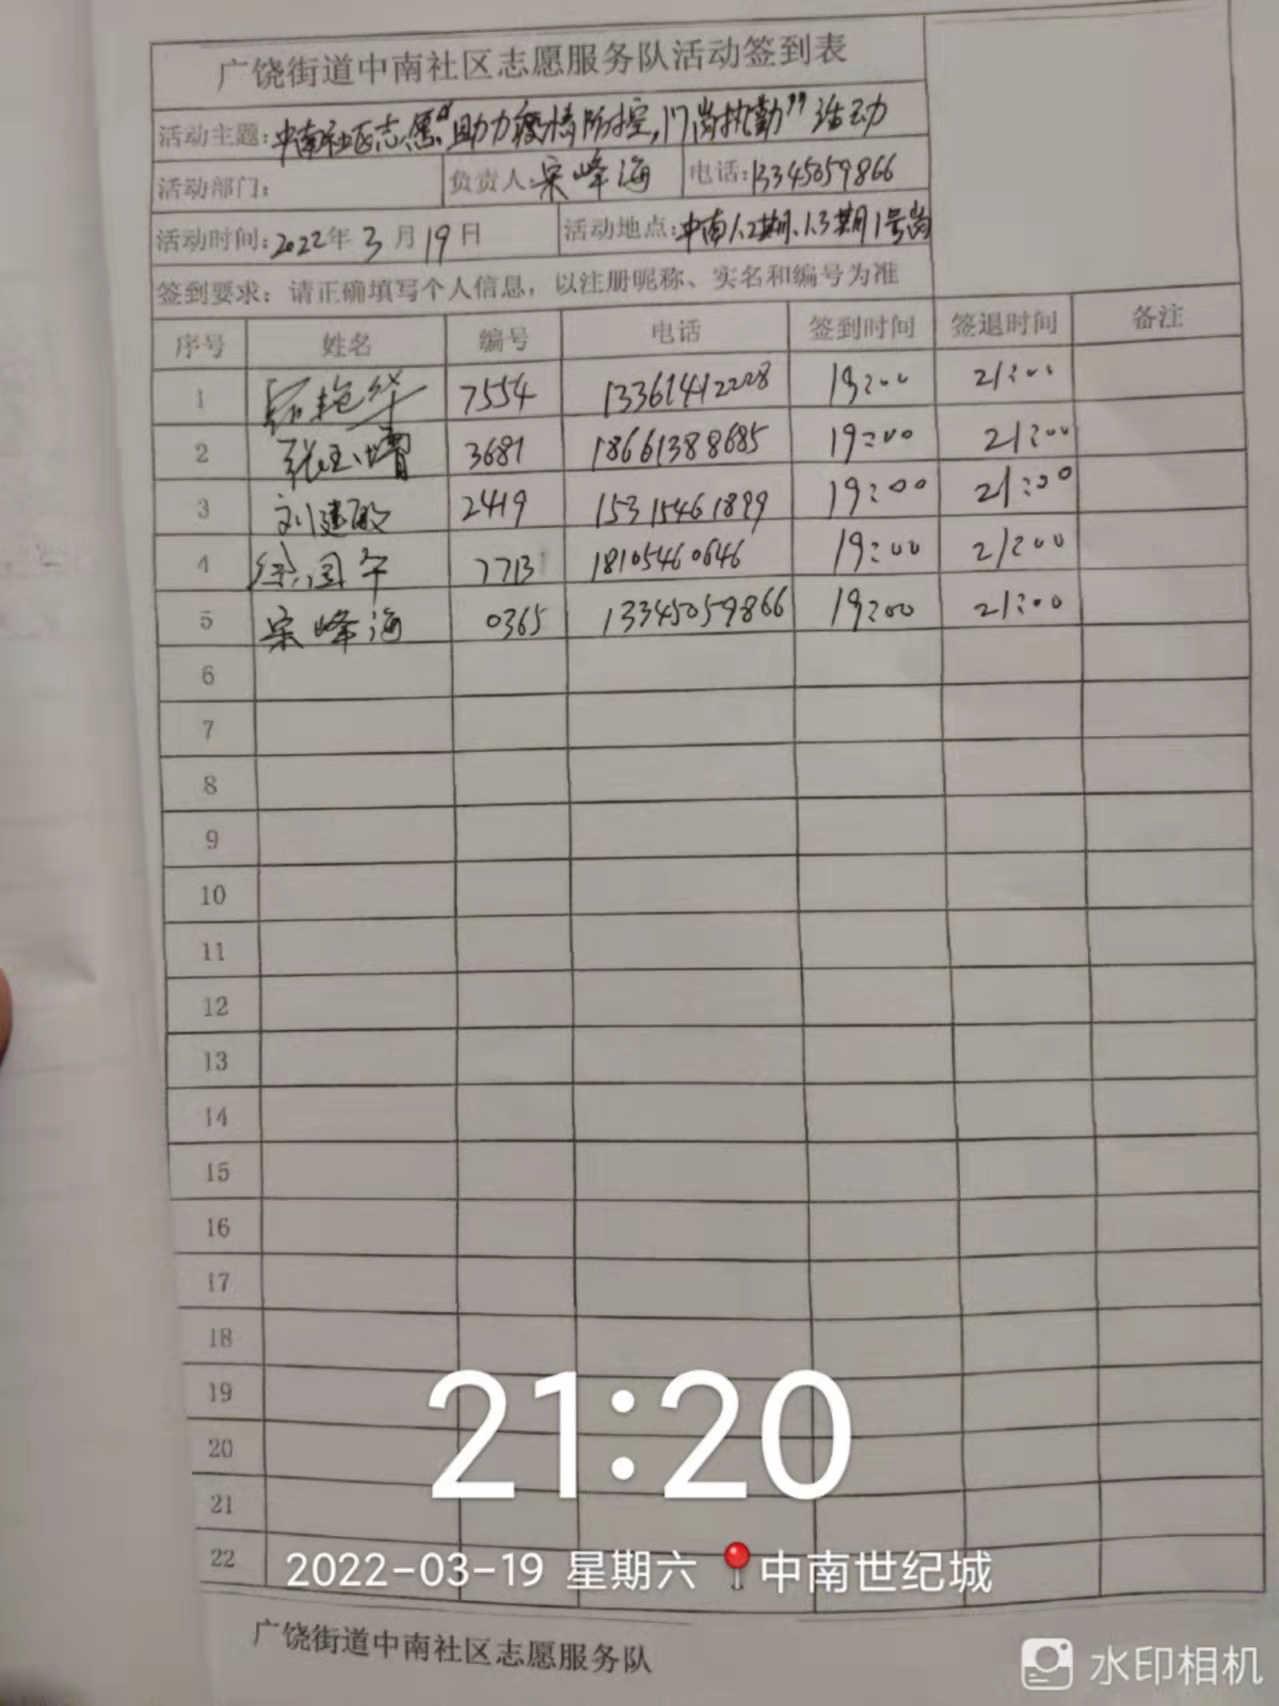 广饶街道中南社区志愿服务队活动签到表
活动主题：中南社区志愿“助力疫情防控，门岗执勤”活动
活动部门： 负责人：宋峰海 电话：13345059866
活动时间：2022年3月19日 活动地点：中南1.2期、1.3期1号岗
签到要求：请正确填写个人信息，以注册昵称、实名和编号为准
序号 姓名 编号 电话 签到时间 签退时间 备注
1 艳华 7554 13361412228 19:00 21:00
2 张玉婧 3681 18661388685 19:00 21:00
3 刘建敏 2419 15315461899 19:00 21:00
4 徐国午 7713 18105460646 19:00 21:00
5 宋峰海 0365 13345059866 19:00 21:00
6
7
8
9
10
11
12
13
14
15
16
17
18
19
20
21
22
21:20
2022-03-19 星期六 中南世纪城
广饶街道中南社区志愿服务队
水印相机